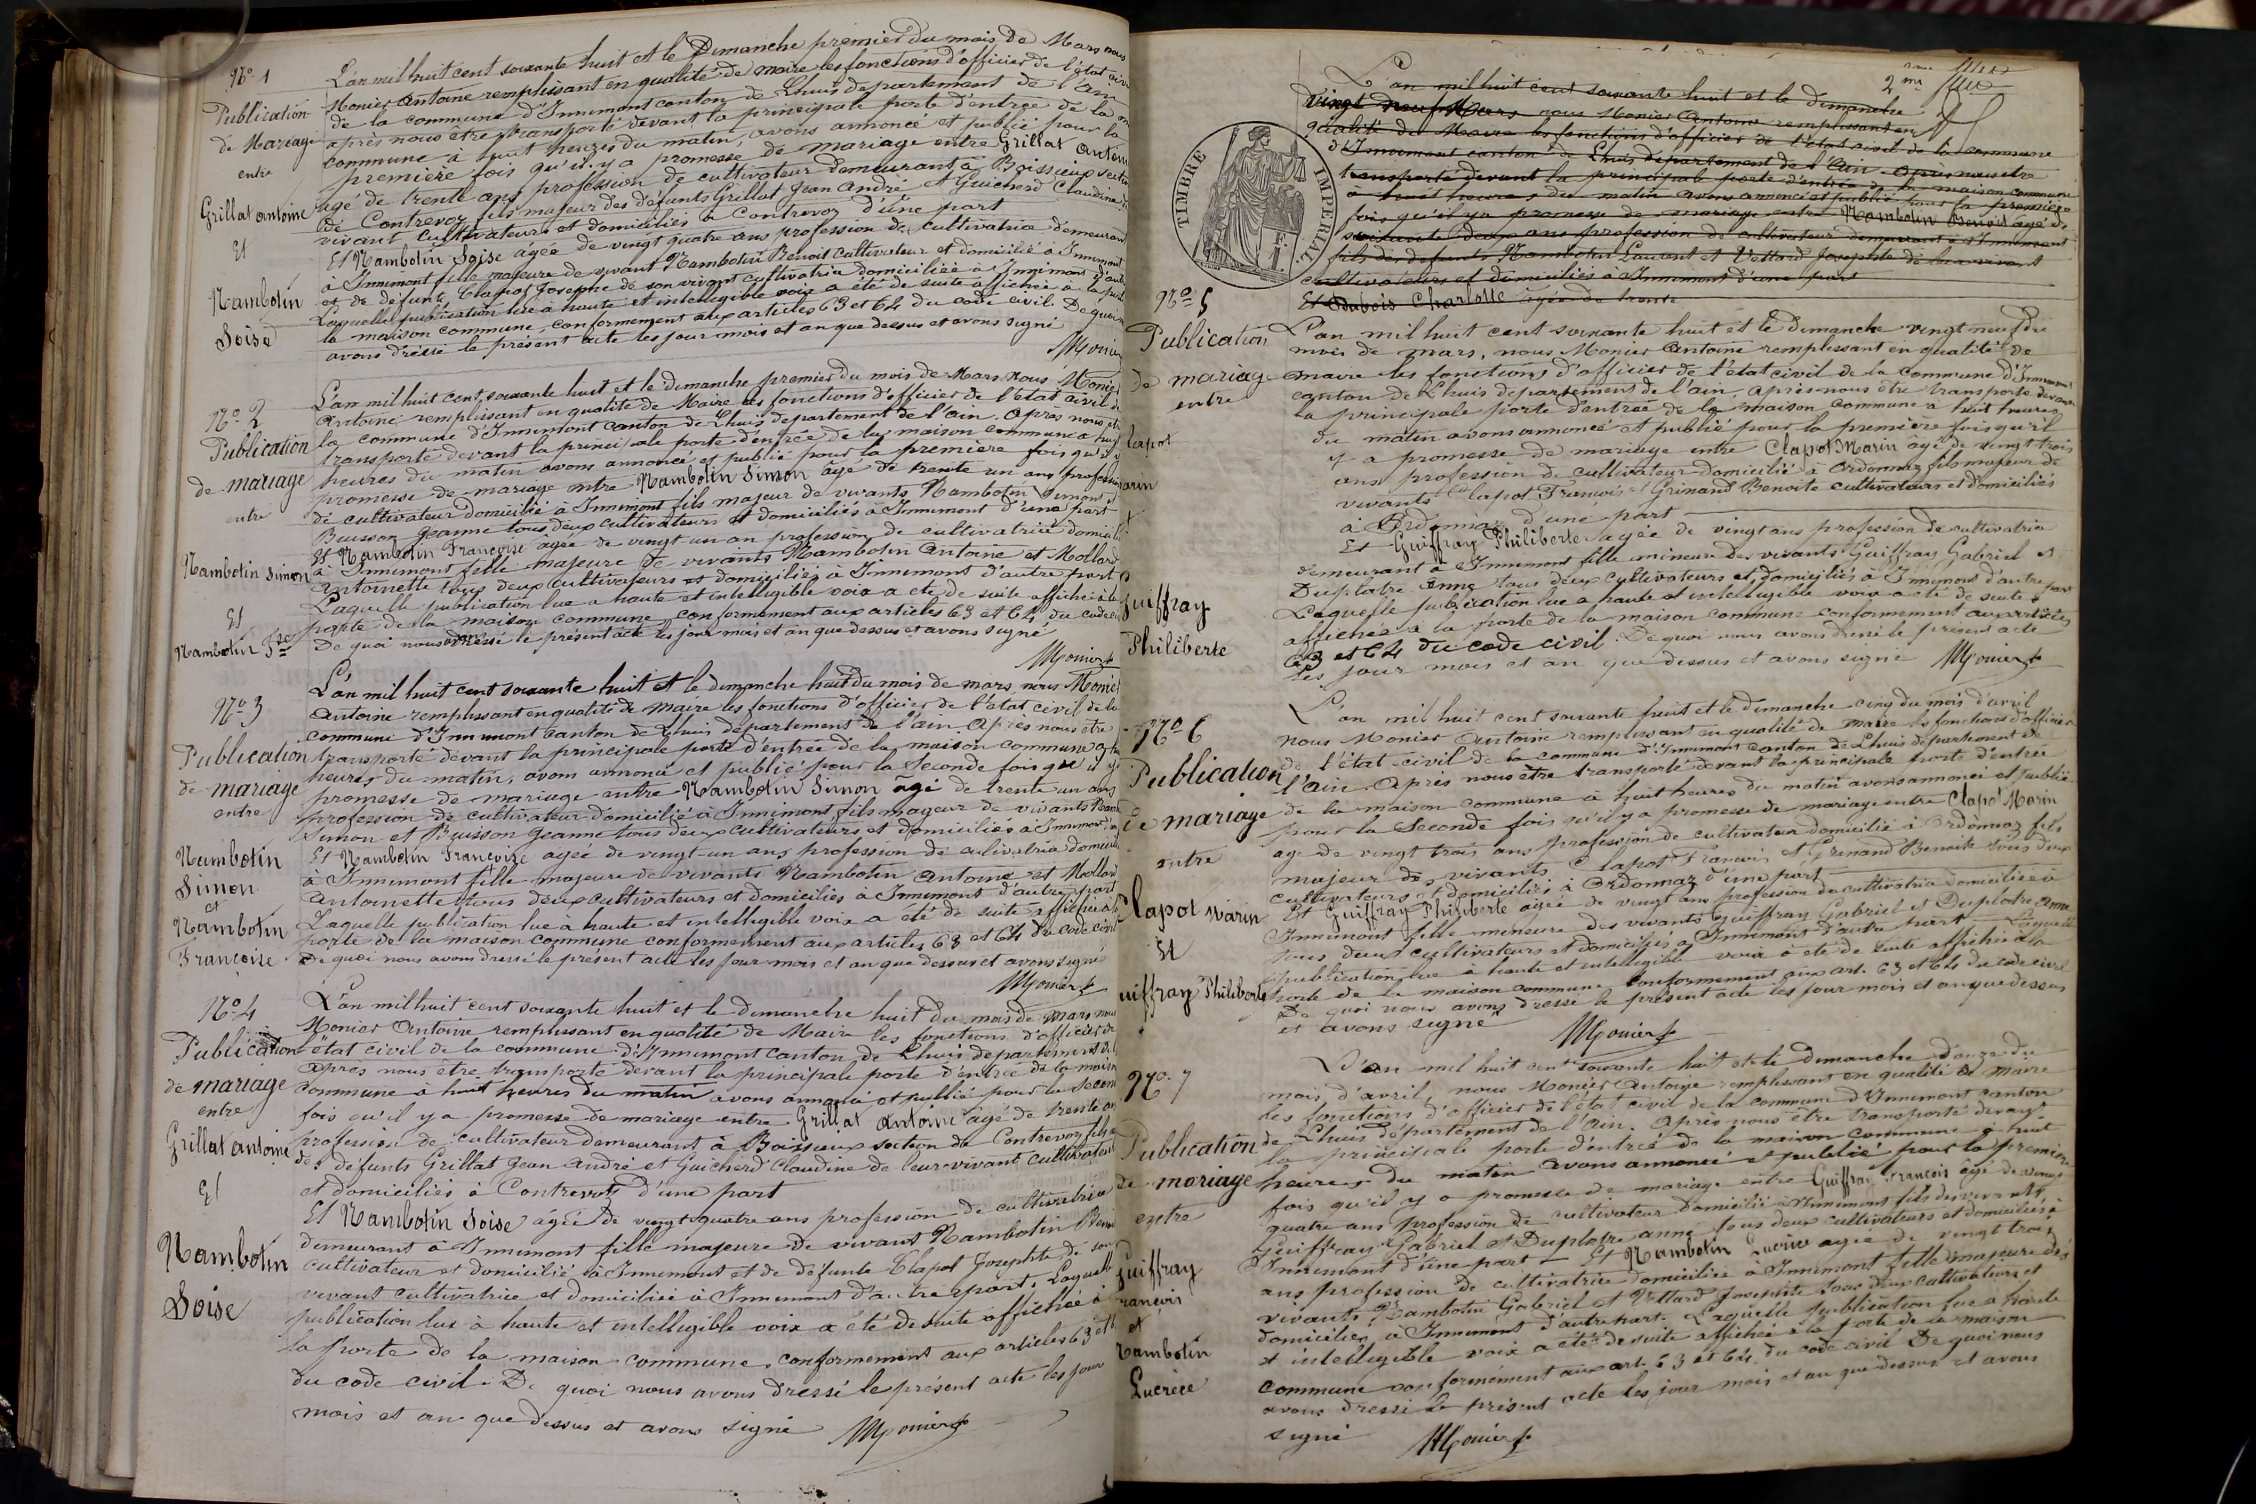 No 1
Publication
de Mariage
entre
Grillat antoine
Et
Nambotin
Soise
L'an mil huit cent soixante huit et le Dimanche premier du mois de Mars nous
Monier Antoine remplissant en qualité de Maire les fonctions d'officier de l'état civil
de la commune d'Innimont canton de Lhuis departement de l'ain
après nous être transporté devant la principale porte d'entrée de la
commune à huit heures du matin, avons annoncé et publié pour la
première fois qu'il y a promesse de mariage entre Grillat antoine
agé de trente ans profession de cultivateur demeurant à Boissieux section
de Contrevoz fils majeur des défunts Grillat Jean André et Guicherd Claudine
vivant cultivateurs et domiciliés à Contrevoz d'une part
Et Nambotin Soise agée de vingt quatre ans profession de cultivatrice demeurant
à Innimont fille majeure de vivant Nambotin Benoit cultivateur et domicilié à Innimont
et de défunte Clapot Josephte de son vivant cultivatrice domiciliée à Innimont d'autre
Laquelle publication lue à haute et intelligible voix a été de suite affichée à la porte
la maison commune, conformement aux articles 63 et 64 du code civil. De quoi
avons dressé le présent acte les jour mois et an que dessus et avons signé
Monier
No 2
Publication
de mariage
entre
Nambotin Simon
Et
Nambotin Fse
L'an mil huit cent soixante huit et le dimanche premier du mois de Mars nous Monier
Antoine remplissant en qualité de Maire les fonctions d'officier de l'état civil de
la commune d'Innimont canton de Lhuis departement de l'ain. Après nous être
transporté devant la principale porte d'entrée de la maison commune à huit
heures du matin avons annoncé et publié pour la première fois qu'il y
promesse de mariage entre Nambotin Simon âgé de trente un ans profession
de cultivateur domicilié à Innimont fils majeur de vivants Nambotin Simon et
Buisson Jeanne tous deux cultivateurs et domiciliés à Innimont d'une part
Et Nambotin Françoise âgée de vingt un an profession de cultivatrice domicilié
à Innimont fille majeure de vivants Nambotin Antoine et Mollard
Antoinette tous deux cultivateurs et domiciliés à Innimont d'autre part
Laquelle publication lue a haute et intelligible voix a été de suite affichée à la
porte de la maison commune conformement aux articles 63 et 64 du code
De quoi nous avons dressé le présent acte les jour mois et an que dessus et avons signé
Monier
No 3
Publication
de mariage
entre
Nambotin
Simon
et
Nambotin
Françoise
L'an mil huit cent soixante huit et le dimanche huit du mois de mars, nous Monier
Antoine remplissant en qualité de Maire les fonctions d'officier de l'état civil de la
commune d'Innimont canton de Lhuis département de l'ain Après nous être
transporté devant la principale porte d'entrée de la maison commune
heures du matin, avons annoncé et publié pour la seconde fois que il y
promesse de mariage entre Nambotin Simon âgé de trente un ans
profession de cultivateur domicilié à Innimont, fils majeur de vivants
Simon et Buisson Jeanne tous deux cultivateurs et domiciliés à Innimont
Et Nambotin Françoise agée de vingt-un ans profession de cultivatrice
à Innimont fille majeure de vivants Nambotin Antoine et Mollard
Antoinette tous deux cultivateurs et domiciliés à Innimont d'autre part
Laquelle publication lue à haute et intelligible voix a été de suite affichée à la
porte de la maison commune conformement aux articles 63 et 64 du code civil
De quoi nous avons dressé le présent acte les jour mois et an que dessus et avons signé
Monier
No 4
Publication
de mariage
entre
Grillat antoine
Et
Nambotin
Soise
L'an mil huit cent soixante huit et le dimanche huit du mois de mars nous
Monier Antoine remplissant en qualité de Maire les fonctions d'officier de
l'état civil de la commune d'Innimont canton de Lhuis departement de
Après nous être transporté devant la principale porte d'entrée de la maison
commune à huit heures du matin avons annoncé et publié pour la second
fois qu'il y a promesse de mariage entre Grillat Antoine agé de trente an
profession de cultivateur demeurant à Boissieux section de Contrevoz fils
des défunts Grillat Jean André et Guicherd Claudine de leur vivant cultivateur
et domiciliés à Contrevoz d'une part
Et Nambotin Soise âgée de vingt quatre ans profession de cultivatrice
demeurant à Innimont fille majeure de vivant Nambotin
cultivateur et domicilié à Innimont et de défunte Clapot Josephte de son
vivant cultivatrice et domiciliée à Innimont d'autre part. Laquelle
publication lue à haute et intelligible voix a été de suite affichée à
la porte de la maison commune, conformement aux articles 63 et
du code civil. De quoi nous avons dressé le présent acte les jour
mois et an que dessus et avons signé Monier
2me
TIMBRE IMPÉRIAL.
L'an mil huit cent soixante huit et le dimanche
vingt neuf Mars nous Monier Antoine remplissant en
qualité de Maire les fonctions d'officier de l'état civil de la commune
d'Innimont canton de Lhuis departement de l'Ain. Après nous etre
transporté devant la principale porte d'entrée de la maison commune
à huit heures du matin avons annoncé et publié pour la première
fois qu'il y a promesse de mariage entre Nambotin Benoit âgé de
soixante deux ans profession de cultivateur demeurant à Innimont
fils des defunts Nambotin Laurent et Vettard Josephte de leur vivant
cultivateurs et domiciliés à Innimont d'une part
Et Dubois Charlotte agée de trente
No 5
Publication
de mariage
entre
lapot
arin
Guiffray
Philiberte
L'an mil huit cent soixante huit et le dimanche vingt neuf du
mois de mars, nous Monier Antoine remplissant en qualité de
maire les fonctions d'officier de l'état civil de la commune d'Innimont
canton de Lhuis departement de l'ain, Après nous être transporté devant
la principale porte d'entrée de la maison commune à huit heures
du matin avons annoncé et publié pour la première fois qu'il
y a promesse de mariage entre Clapot Marin âgé de vingt trois
ans profession de cultivateur domicilié à Ordonnaz fils majeur de
vivants Clapot François et Grinand Benoite cultivateurs et domiciliés
à Ordonnaz d'une part
Et Guiffray Philiberte agée de vingt ans profession de cultivatrice
demeurant à Innimont fille mineure des vivants Guiffray Gabriel et
Duplatre Anne tous deux cultivateurs et domiciliés à Innimont d'autre part
Laquelle publication lue à haute et intelligible voix a été de suite
affichée à la porte de la maison commune conformement aux articles
63 et 64 du code civil. De quoi nous avons dressé le présent acte
les jour mois et an que dessus et avons signé Monier
No 6
Publication
de mariage
entre
Clapot Marin
Et
uiffray Philiberte
L'an mil huit cent soixante huit et le dimanche cinq du mois d'avril
nous Monier Antoine remplissant en qualité de maire les fonctions d'officier
de l'état civil de la commune d'Innimont canton de Lhuis département de
l'ain. Après nous être transporté devant la principale porte d'entrée
de la maison commune à huit heures du matin avons annoncé et publié
pour la seconde fois qu'il y a promesse de mariage entre Clapot Marin
agé de vingt trois ans profession de cultivateur domicilié à Ordonnaz fils
majeur des vivants Clapot François et Grinand Benoite tous deux
cultivateurs et domiciliés à Ordonnaz d'une part
Et Guiffray Philiberte agée de vingt ans profession de cultivatrice domiciliée à
Innimont fille mineure des vivants Guiffray Gabriel et Duplatre Anne
tous deux cultivateurs et domiciliés à Innimont d'autre part Laquelle
publication lue à haute et intelligible voix a été de suite affichée à la
porte de la maison commune conformement aux art. 63 et 64 du code civil
De quoi nous avons dressé le présent acte les jour mois et an que dessus
et avons signé Monier
No 7
Publication
de mariage
entre
Guiffray
rançois
et
Nambotin
Lucrèce
L'an mil huit cent soixante huit et le dimanche douze du
mois d'avril, nous Monier Antoine remplissant en qualité de maire
les fonctions d'officier de l'état civil de la commune d'Innimont canton
de Lhuis département de l'ain. Après nous être transporté devant
la principale porte d'entrée de la maison commune à huit
heures du matin avons annoncé et publié pour la première
fois qu'il y a promesse de mariage entre Guiffray François âgé de vingt
quatre ans profession de cultivateur domicilié à Innimont fils des vivants
Guiffray Gabriel et Duplatre anne tous deux cultivateurs et domiciliés à
Innimont d'une part — Et Nambotin Lucrèce agée de vingt trois
ans profession de cultivatrice domiciliée à Innimont fille majeure des
vivants Nambotin Gabriel et Vettard Josephte tous deux cultivateurs et
domiciliés à Innimont d'autre part. Laquelle publication lue à haute
et intelligible voix a été de suite affichée à la porte de la maison
commune conformément aux art. 63 et 64 du code civil De quoi nous
avons dressé le présent acte les jour mois et an que dessus et avons
signé Monier